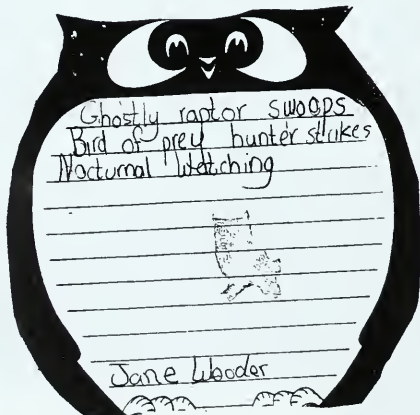 Ghostly raptor swoops
Bird of prey hunter strikes
Nocturnal Watching
Jane Wooder